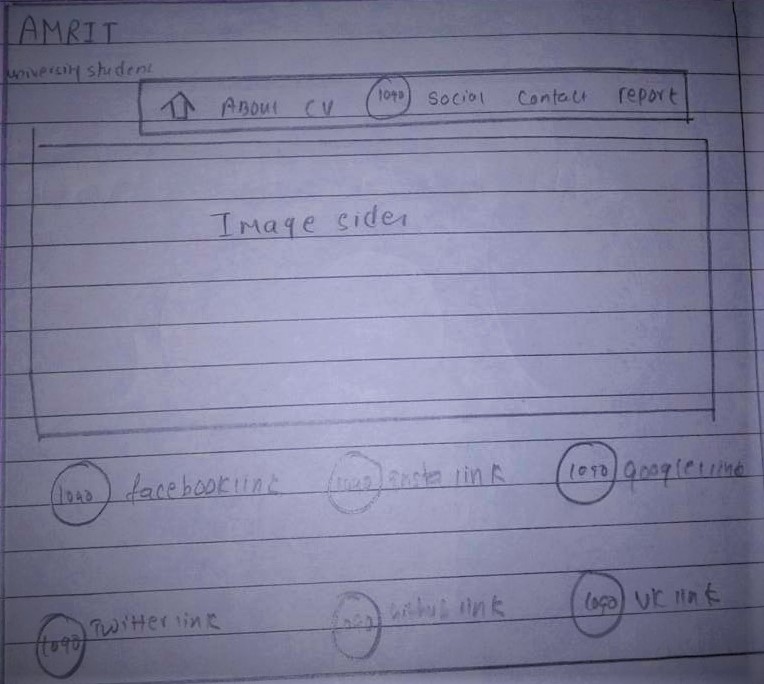 AMRIT
university student
About CV logo social contact report
Image sider
logo facebook link logo insta link logo google link
logo Twitter link logo github link logo VK link